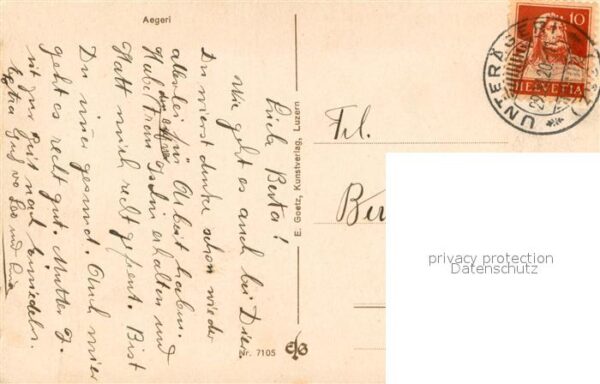 Aegeri
Liebe Berta!
Wie geht es auch bei Dir.
Du wirst denke schon wieder
allerlei für Arbeit haben.
Habe Dein erhalten und
Hatt mich recht gefreut. Bist
Du immer gesund. Auch mier
geht es recht gut. Mutter
mit zur nach Einsiedeln.
Gruß von und
E. Goetz, Kunstverlag, Luzern
Nr. 7105
Frl.
Ber
10
HELVETIA
UNTERÄGERI
privacy protection
Datenschutz